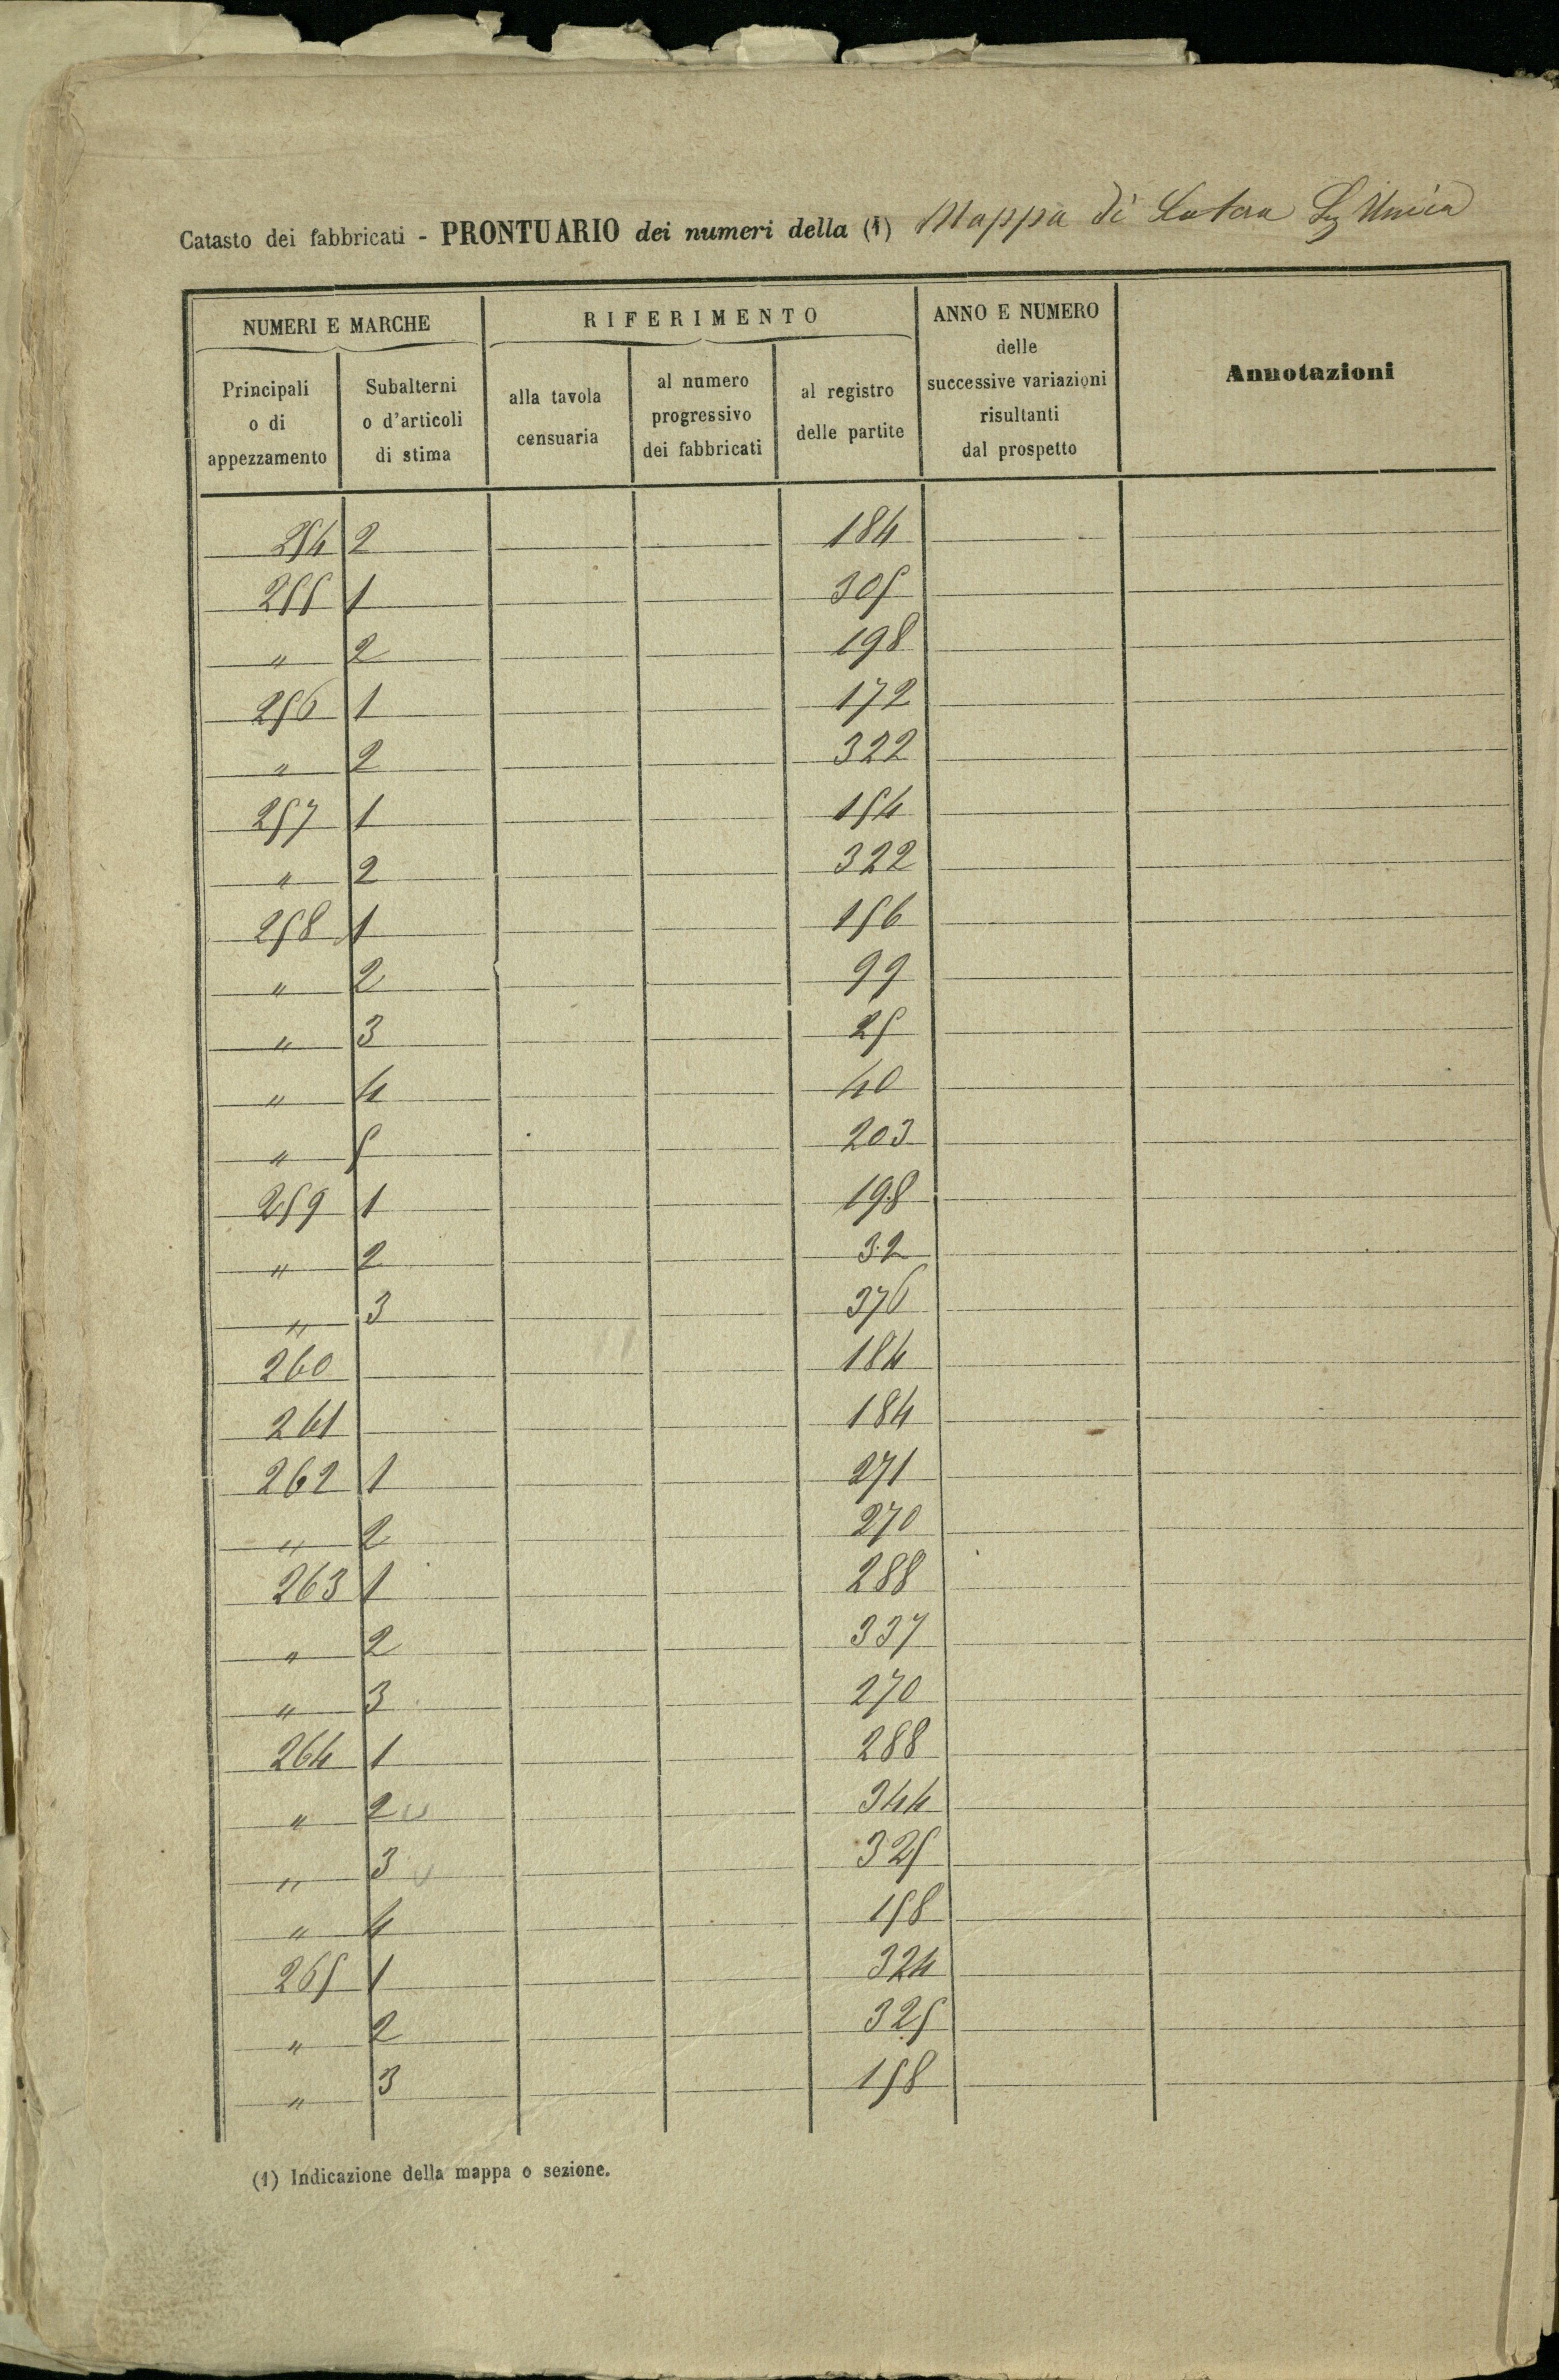 Catasto dei fabbricati - PRONTUARIO dei numeri della (1) Mappa di Latera Sez Unica
NUMERI E MARCHE
RIFERIMENTO
ANNO E NUMERO
delle
successive variazioni
risultanti
dal prospetto
Annotazioni
Principali
o di
appezzamento
Subalterni
o d'articoli
di stima
alla tavola
censuaria
al numero
progressivo
dei fabbricati
al registro
delle partite
254 2 184
255 1 305
" 2 198
256 1 172
" 2 322
257 1 154
" 2 322
258 1 156
" 2 99
" 3 25
" 4 40
" 5 203
259 1 198
" 2 32
" 3 376
260 184
261 184
262 1 271
" 2 270
263 1 288
" 2 337
" 3 270
264 1 288
" 2 344
" 3 325
" 4 158
265 1 324
" 2 325
" 3 158
(1) Indicazione della mappa o sezione.